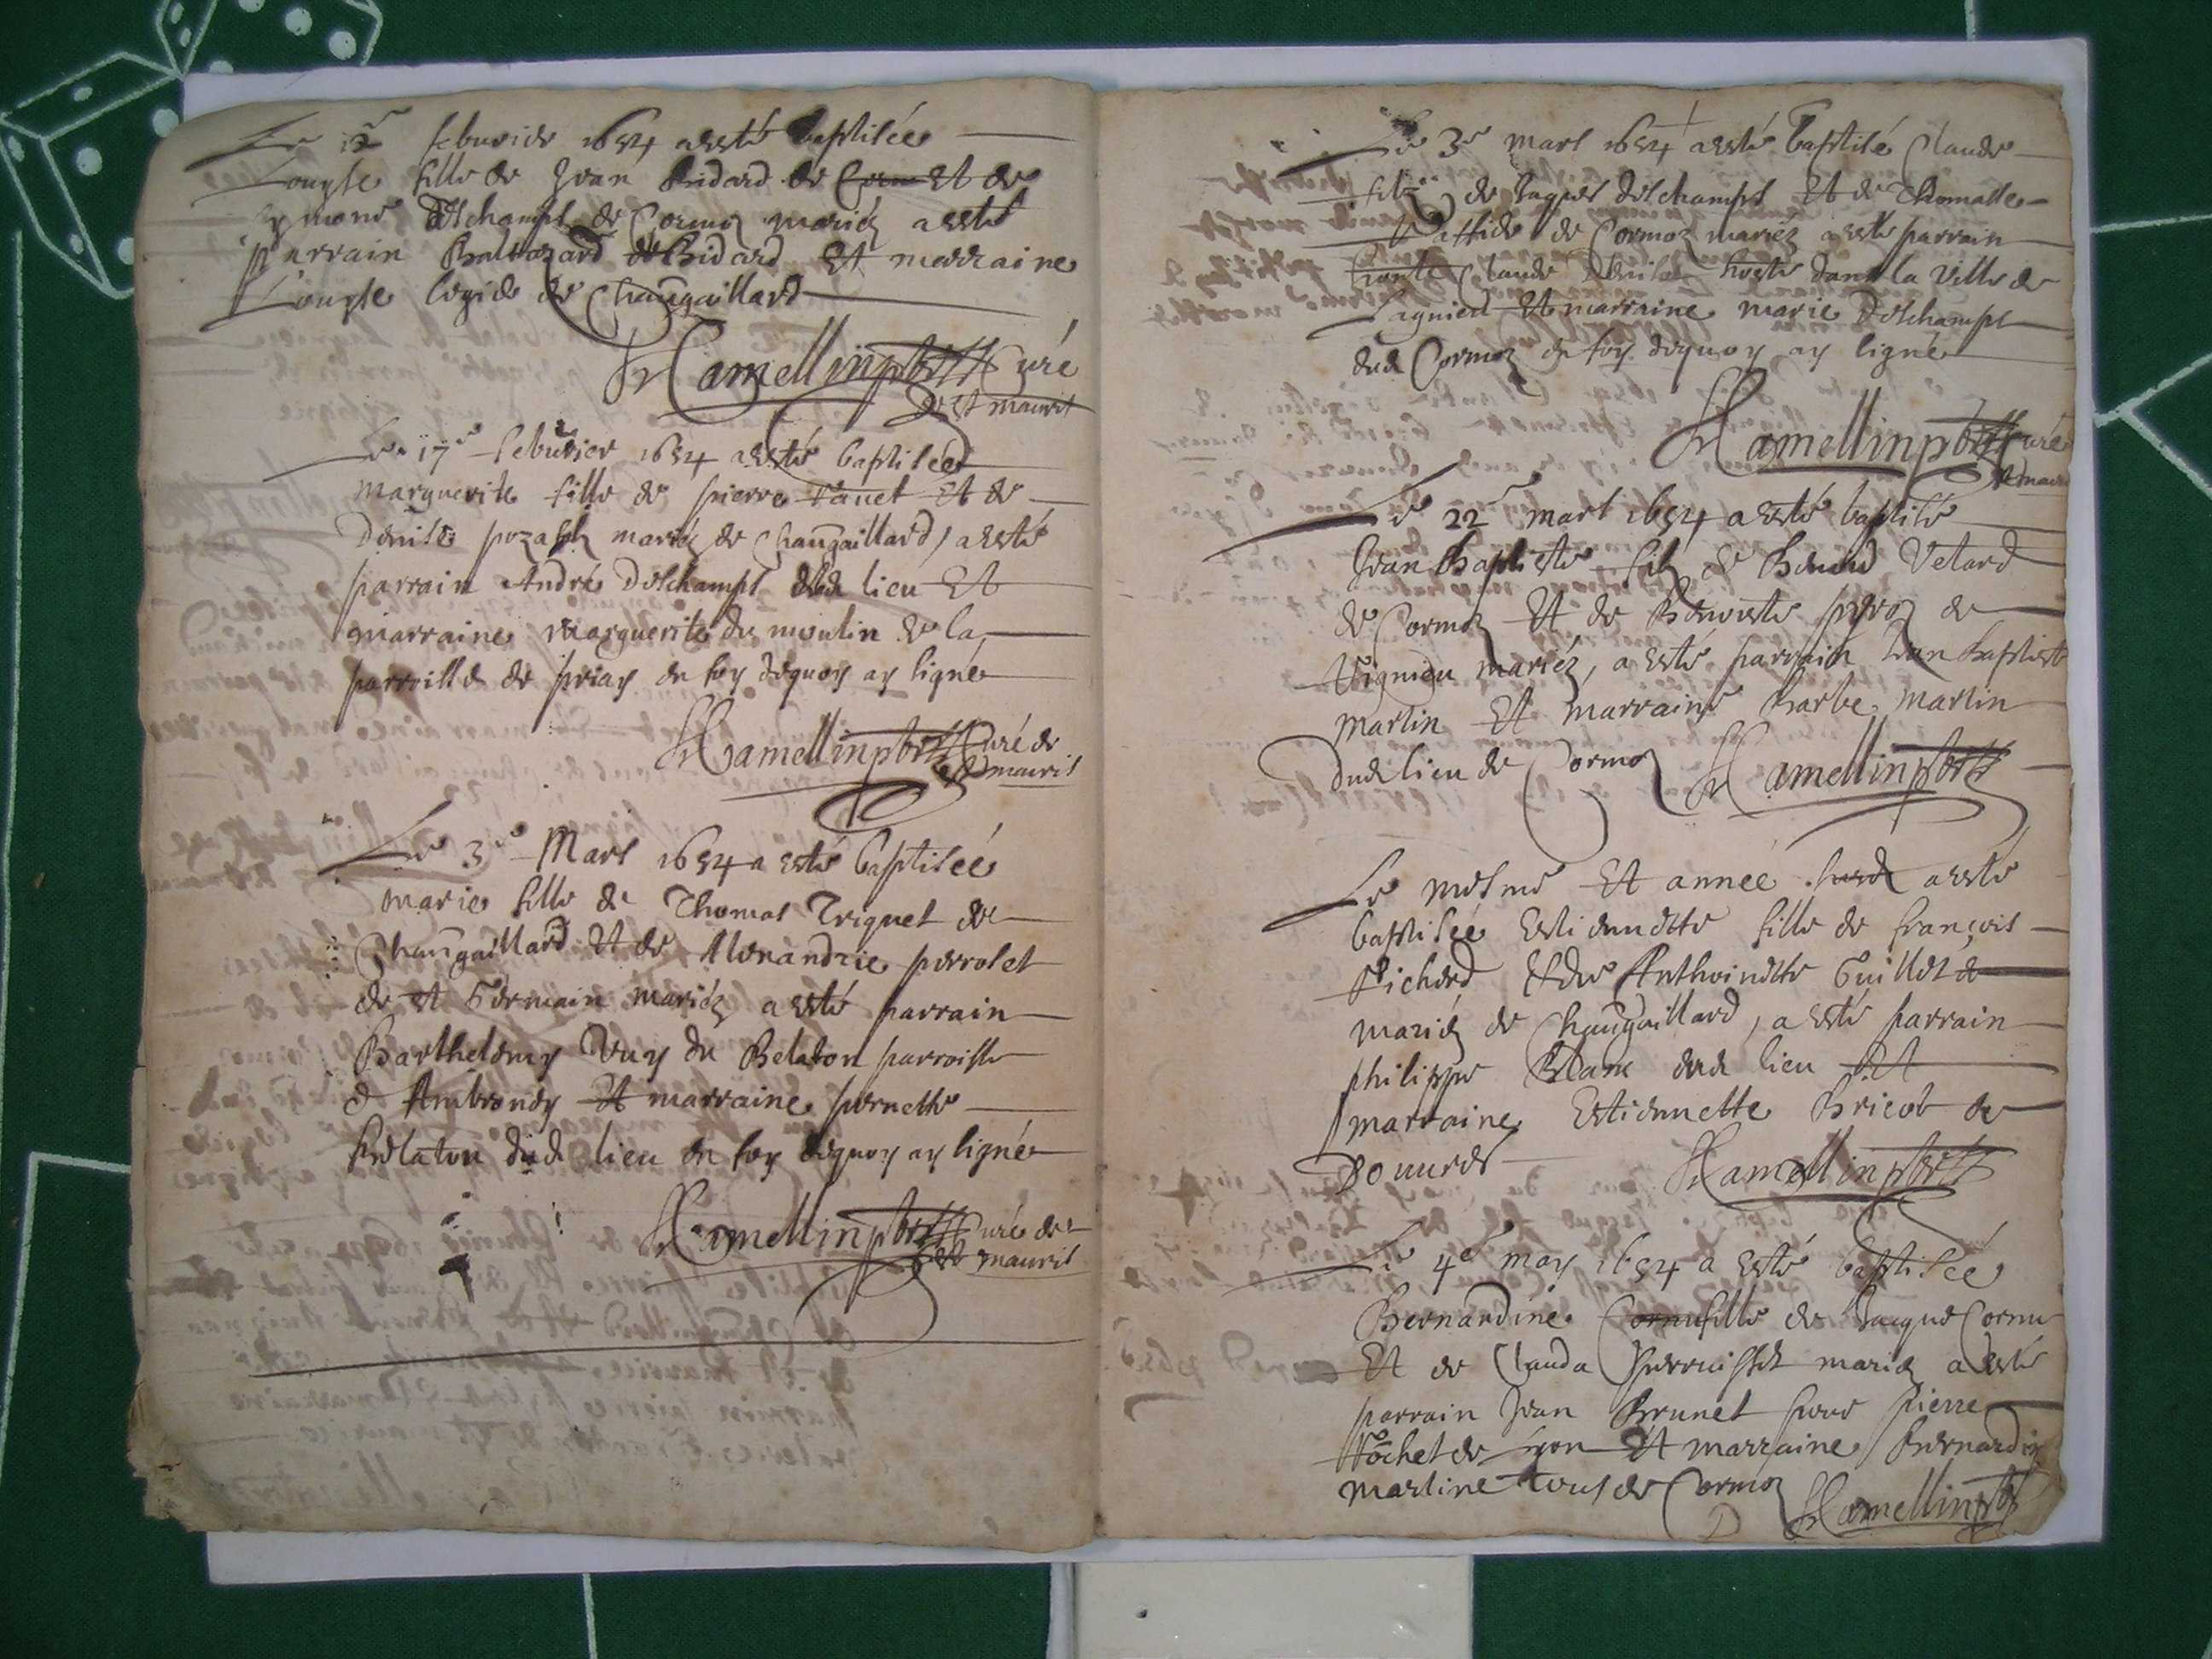 Le 2e feburier 1654 a esté baptisée
Louyse fille de Jean Bidard de Corm Et de
Deschamps de Cormoz mariéz a esté
parrain Baltazard Bidard Et marraine
Louyse legide de Chaugaillard
Hamellin pbtre Curé
de St mauris
Le 17e feburier 1654 a esté baptisée
marguerite fille de pierre Et de
Denise mariéz de Chaugaillard, a esté
parrain André Deschamps dud lieu Et
marraine marguerite du moulin de la
parroisse de priay en foy dequoy ay signé
Hamellin pbtre Curé de
St mauris
Le 3e Mars 1654 a esté baptisée
marie fille de Thomas Triquet de
Chaugaillard Et de Alexandrie perrolet
de St Germain mariéz a esté parrain
Barthelemy Vuy du Belaton parroisse
d Ambronay Et marraine pernette
Belaton dud lieu en foy dequoy ay signé
Hamellin pbtre Curé de
St mauris
Le 3e mars 1654 a esté baptisé Claude
filz de Jaques Deschamps Et de Thomasse
de Cormoz mariéz a esté parrain
Claude hoste dans la Ville de
Lagnieu Et marraine marie Deschamps
dud Cormoz en foy dequoy ay signé
Hamellin pbtre Curé
St mauris
Le 22e mars 1654 a esté baptisé
Jean Baptiste filz de Benoid Vetard
de Cormoz Et de Benoiste de
Vignieu mariéz, a esté parrain Jean baptiste
martin Et marraine barbe martin
dud lieu de Cormoz Hamellin pbtre
Le mesme Et année a esté
baptisée Estiennette fille de françois
Richerd Et de Anthoinette Guillet de
mariéz de Chaugaillard, a esté parrain
philippe Blanc dud lieu Et
marraine Estiennette Bricot de
Douures Hamellin pbtre
Le 4e may 1654 a esté baptisée
Bernardine Cornu fille de Jaque Cornu
Et de Clauda mariéz a esté
parrain Jean Brunet pour pierre
Hochet de Lyon Et marraine Bernardine
martine tous de Cormoz Hamellin pbtre